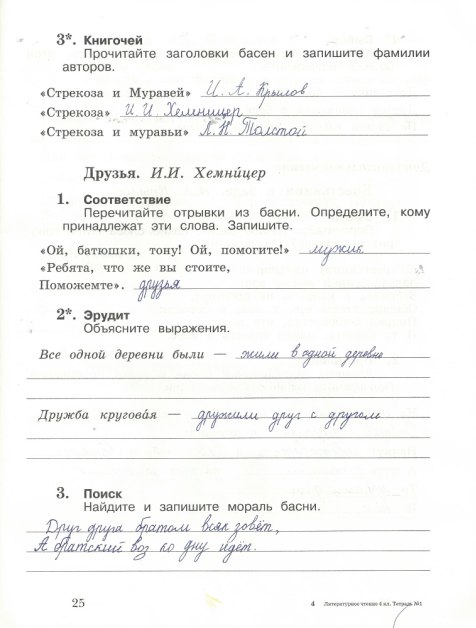 3*. Книгочей
Прочитайте заголовки басен и запишите фамилии
авторов.
«Стрекоза и Муравей» И. А. Крылов
«Стрекоза» И. И. Хемницер
«Стрекоза и муравьи» Л. Н Толстой
Друзья. И.И. Хемни́цер
1. Соответствие
Перечитайте отрывки из басни. Определите, кому
принадлежат эти слова. Запишите.
«Ой, батюшки, тону! Ой, помогите!» мужик
«Ребята, что же вы стоите,
Поможемте». друзья
2*. Эрудит
Объясните выражения.
Все одной деревни были — жили в одной деревне
Дружба кругова́я — дружили друг с другом
3. Поиск
Найдите и запишите мораль басни.
Друг друга братом всяк зовёт,
А братский воз ко дну идёт.
25 4 Литературное чтение 4 кл. Тетрадь №1